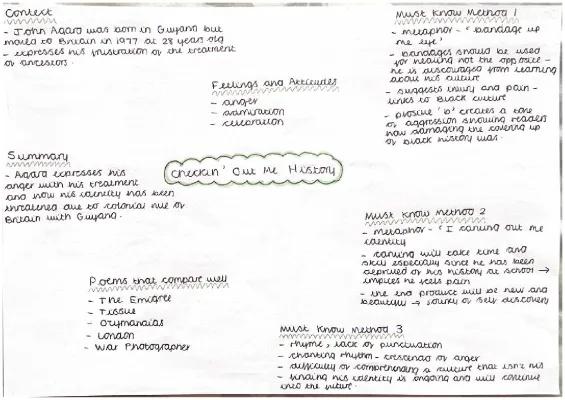 Context
- John Agard was born in Guyana but
moved to Britain in 1977 at 28 years old
- expresses his frustration of the treatment
of ancestors.
Must Know Method 1
- metaphor - 'bandage up
me eye'
- bandages should be used
for healing not the opposite -
he is discouraged from learning
about his culture
- suggests injury and pain -
links to Black culture
- plosive 'b' creates a tone
of aggression showing readers
how damaging the covering up
of black history was.
Feelings and Attitudes
- anger
- admiration
- celebration
Summary
- Agard expresses his
anger with his treatment
and how his identity has been
threatened due to colonial rule of
Britain with Guyana.
Checkin' Out Me History
Must Know Method 2
- metaphor - 'I carving out me
identity
- carving will take time and
skill especially since he has been
deprived of his history at school →
implies he feels pain
- the end product will be new and
beautiful → journey of self discovery
Poems that compare well
- The Emigree
- Tissue
- Ozymanaias
- London
- War Photographer
Must Know Method 3
- rhyme, lack of punctuation
- chanting rhythm - crescendo of anger
- difficulty of comprehending a culture that isn't his
- finding his identity is ongoing and will continue
into the future.